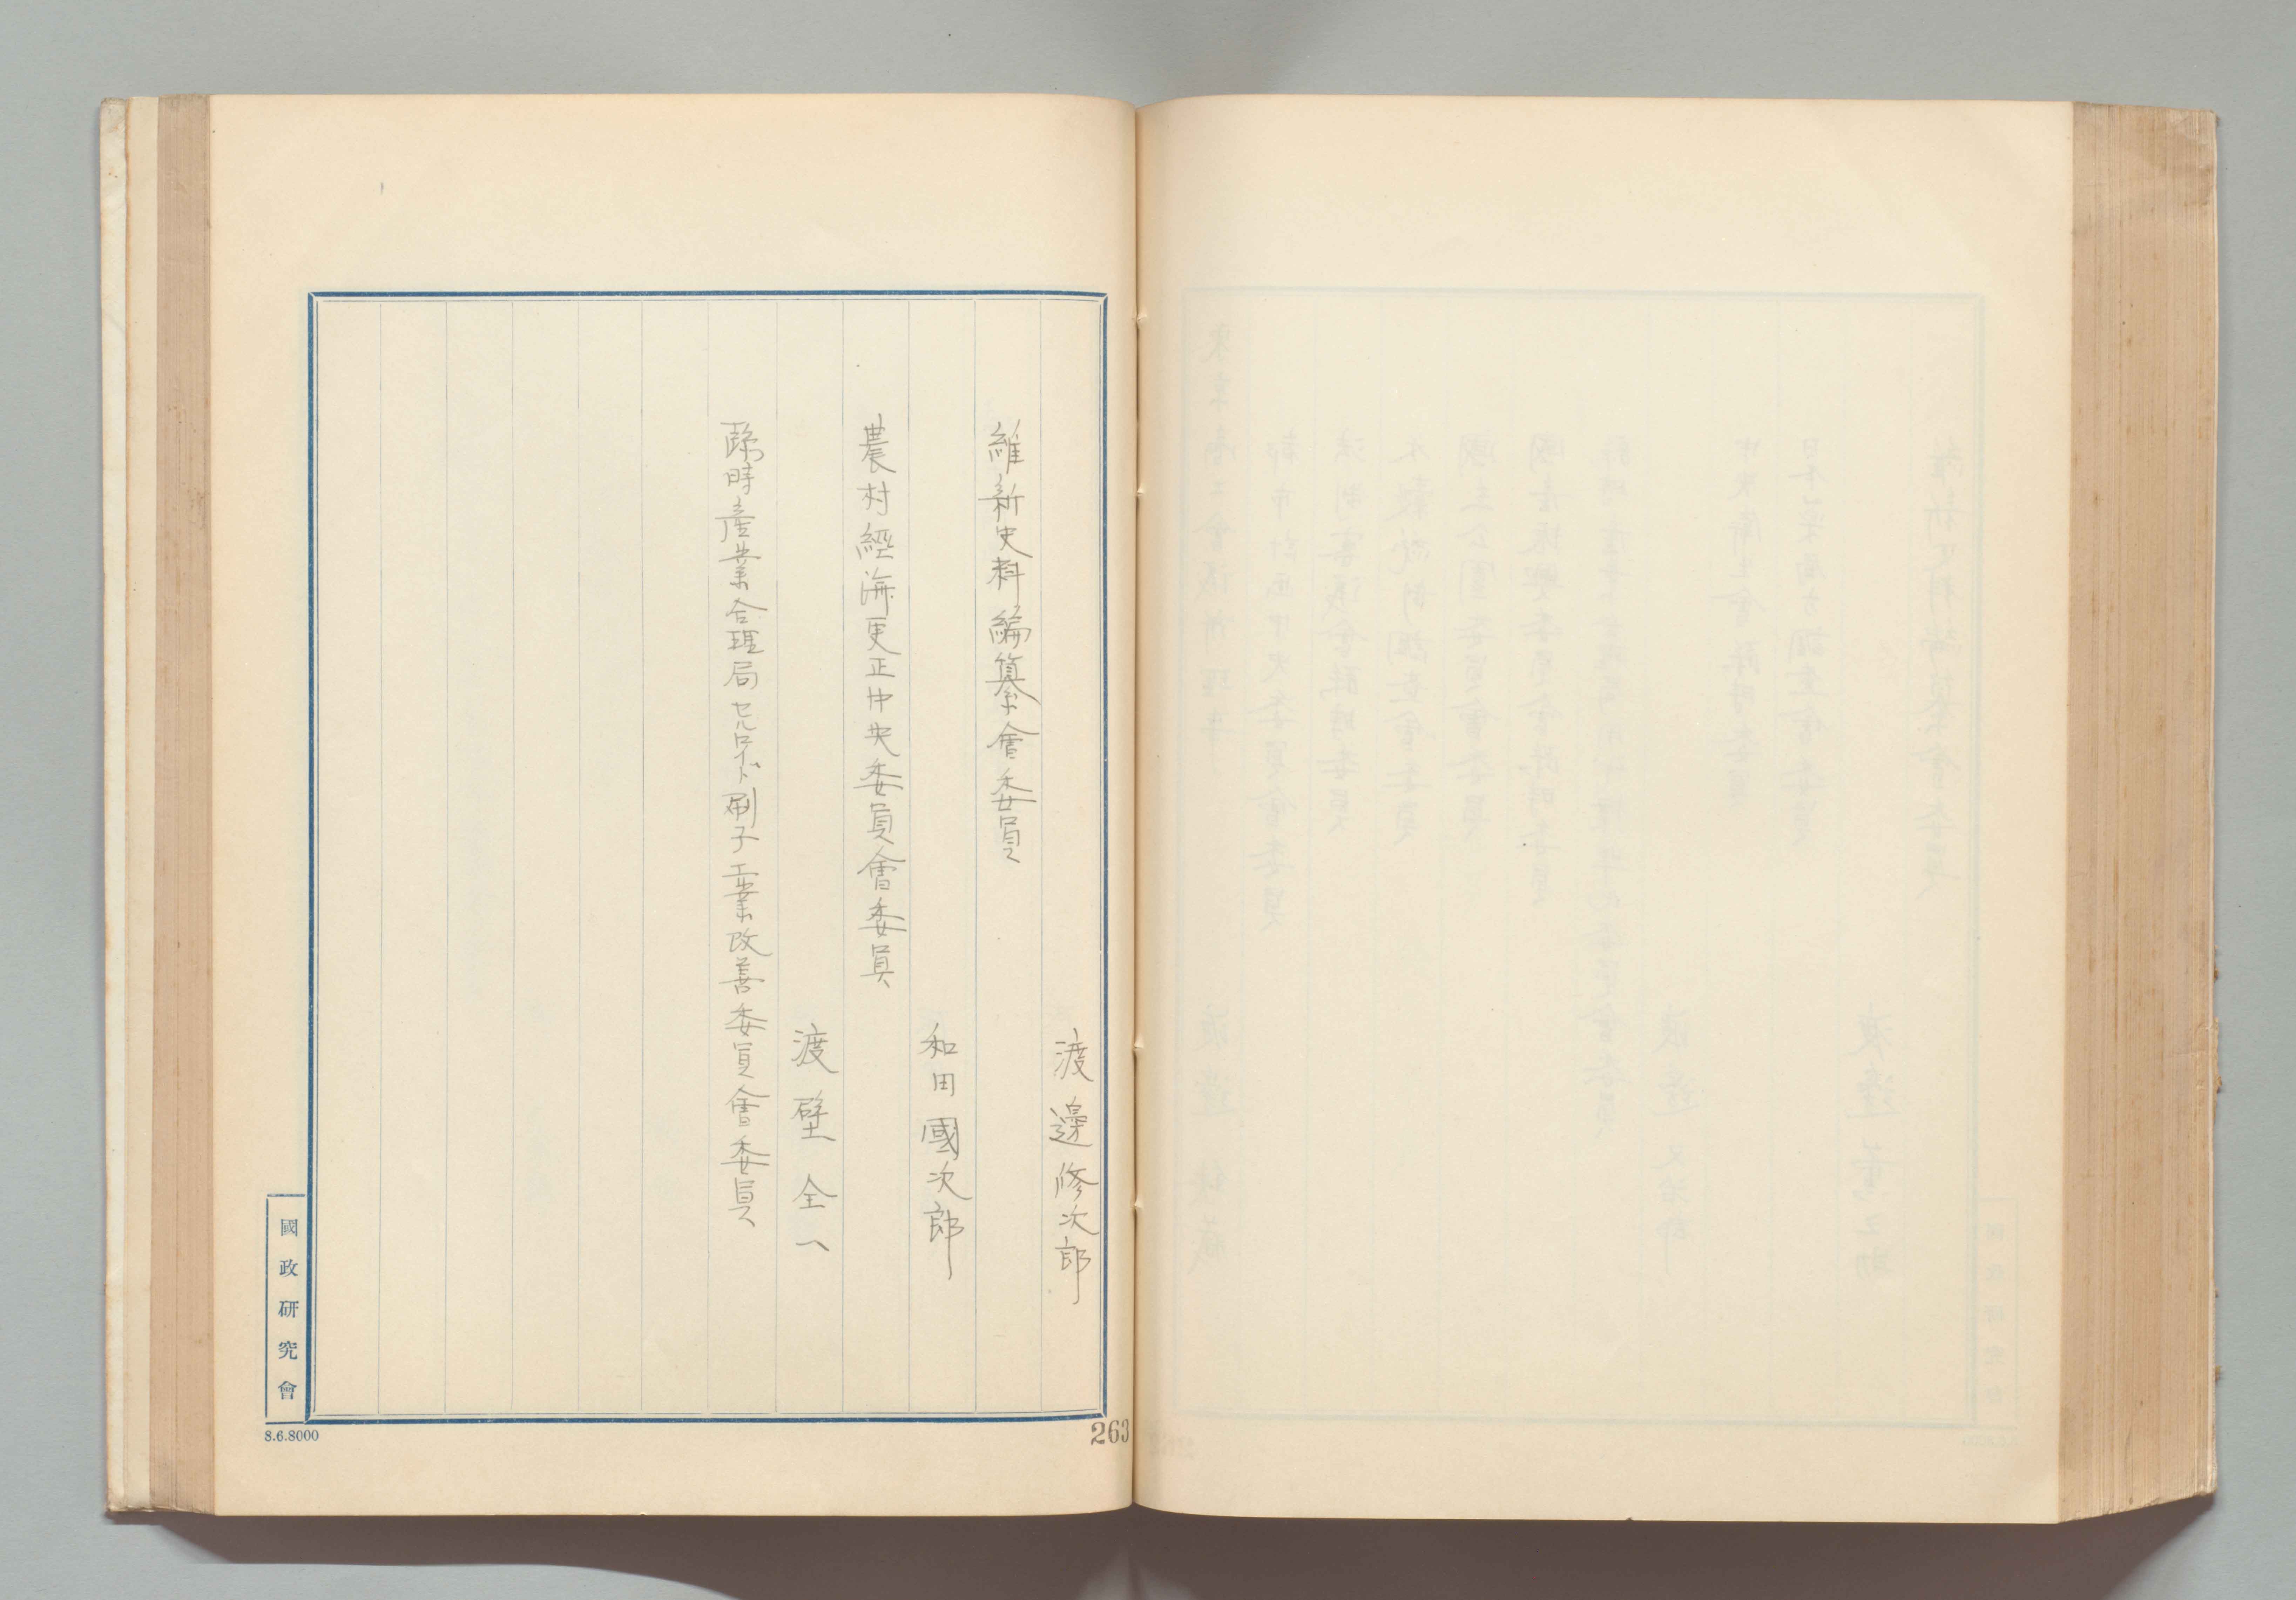 渡邊修次郎
維新史料編纂會委員
和田國次郎
農村經済更正中央委員會委員
渡壁全一
臨時産業合理局セルロイド刷子工業改善委員會委員
國政研究會
8.6.8000
263